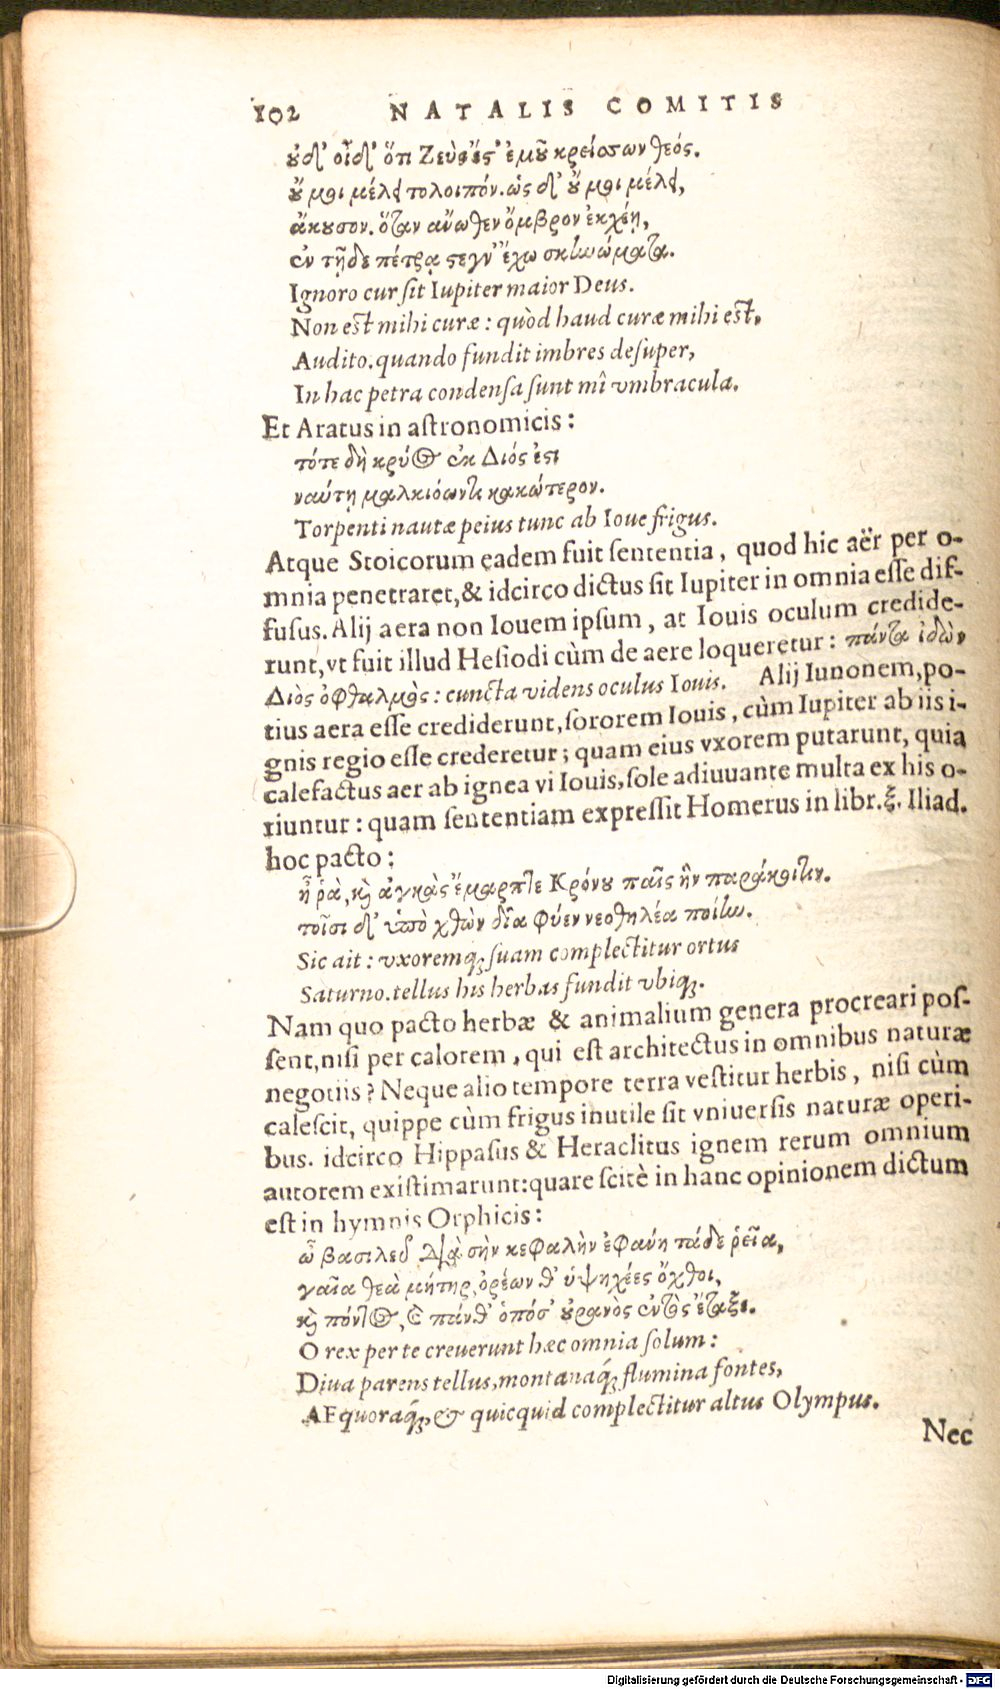 102 NATALIS COMITIS
οὐδ' οἶδ' ὅτι Ζεύς ἔστ' ἐμοῦ κρείσσων θεός.
οὔ μοι μέλει τολοιπόν. ὡς δ' οὔ μοι μέλει,
ἄκουσον. ὅταν ἄνωθεν ὄμβρον ἐκχέῃ,
ἐν τῇδε πέτρᾳ στέγν' ἔχω σκηνώματα.
Ignoro cur sit Iupiter maior Deus.
Non est mihi curæ: quòd haud curæ mihi est,
Audito. quando fundit imbres desuper,
In hac petra condensa sunt mî vmbracula.
Et Aratus in astronomicis:
τότε δὴ κρύος ἐκ Διός ἐστι
ναύτῃ μαλκιόωντι κακώτερον.
Torpenti nautæ peius tunc ab Ioue frigus.
Atque Stoicorum eadem fuit sententia, quod hic aër per o-
mnia penetraret, & idcirco dictus sit Iupiter in omnia esse dif-
fusus. Alij aera non Iouem ipsum, at Iouis oculum credide-
runt, vt fuit illud Hesiodi cùm de aere loqueretur: πάντα ἰδὼν
Διὸς ὀφθαλμὸς: cuncta videns oculus Iouis. Alij Iunonem, po-
tius aera esse crediderunt, sororem Iouis, cùm Iupiter ab iis i-
gnis regio esse crederetur; quam eius vxorem putarunt, quia
calefactus aer ab ignea vi Iouis, sole adiuuante multa ex his o-
riuntur: quam sententiam expressit Homerus in libr. ξ. Iliad.
hoc pacto:
ἦ ῥὰ, καὶ ἀγκὰς ἔμαρπτε Κρόνου παῖς ἣν παράκοιτιν.
τοῖσι δ' ὑπὸ χθὼν δῖα φύεν νεοθηλέα ποίην.
Sic ait: vxoremq; suam complectitur ortus
Saturno. tellus his herbas fundit vbiq;.
Nam quo pacto herbæ & animalium genera procreari pos-
sent, nisi per calorem, qui est architectus in omnibus naturæ
negotiis? Neque alio tempore terra vestitur herbis, nisi cùm
calescit, quippe cùm frigus inutile sit vniuersis naturæ operi-
bus. idcirco Hippasus & Heraclitus ignem rerum omnium
autorem existimarunt: quare scitè in hanc opinionem dictum
est in hymnis Orphicis:
ὦ βασιλεῦ διὰ σὴν κεφαλὴν ἐφάνη τάδε ῥεῖα,
γαῖα θεὰ μήτηρ, ὀρέων θ' ὑψηχέες ὄχθοι,
καὶ πόντος, καὶ πάνθ' ὁπόσ' οὐρανὸς ἐντὸς ἔταξε.
O rex per te creuerunt hæc omnia solum:
Diua parens tellus, montanaq́; flumina fontes,
AEquoraq́;, & quicquid complectitur altus Olympus.
Nec
Digitalisierung gefördert durch die Deutsche Forschungsgemeinschaft - DFG